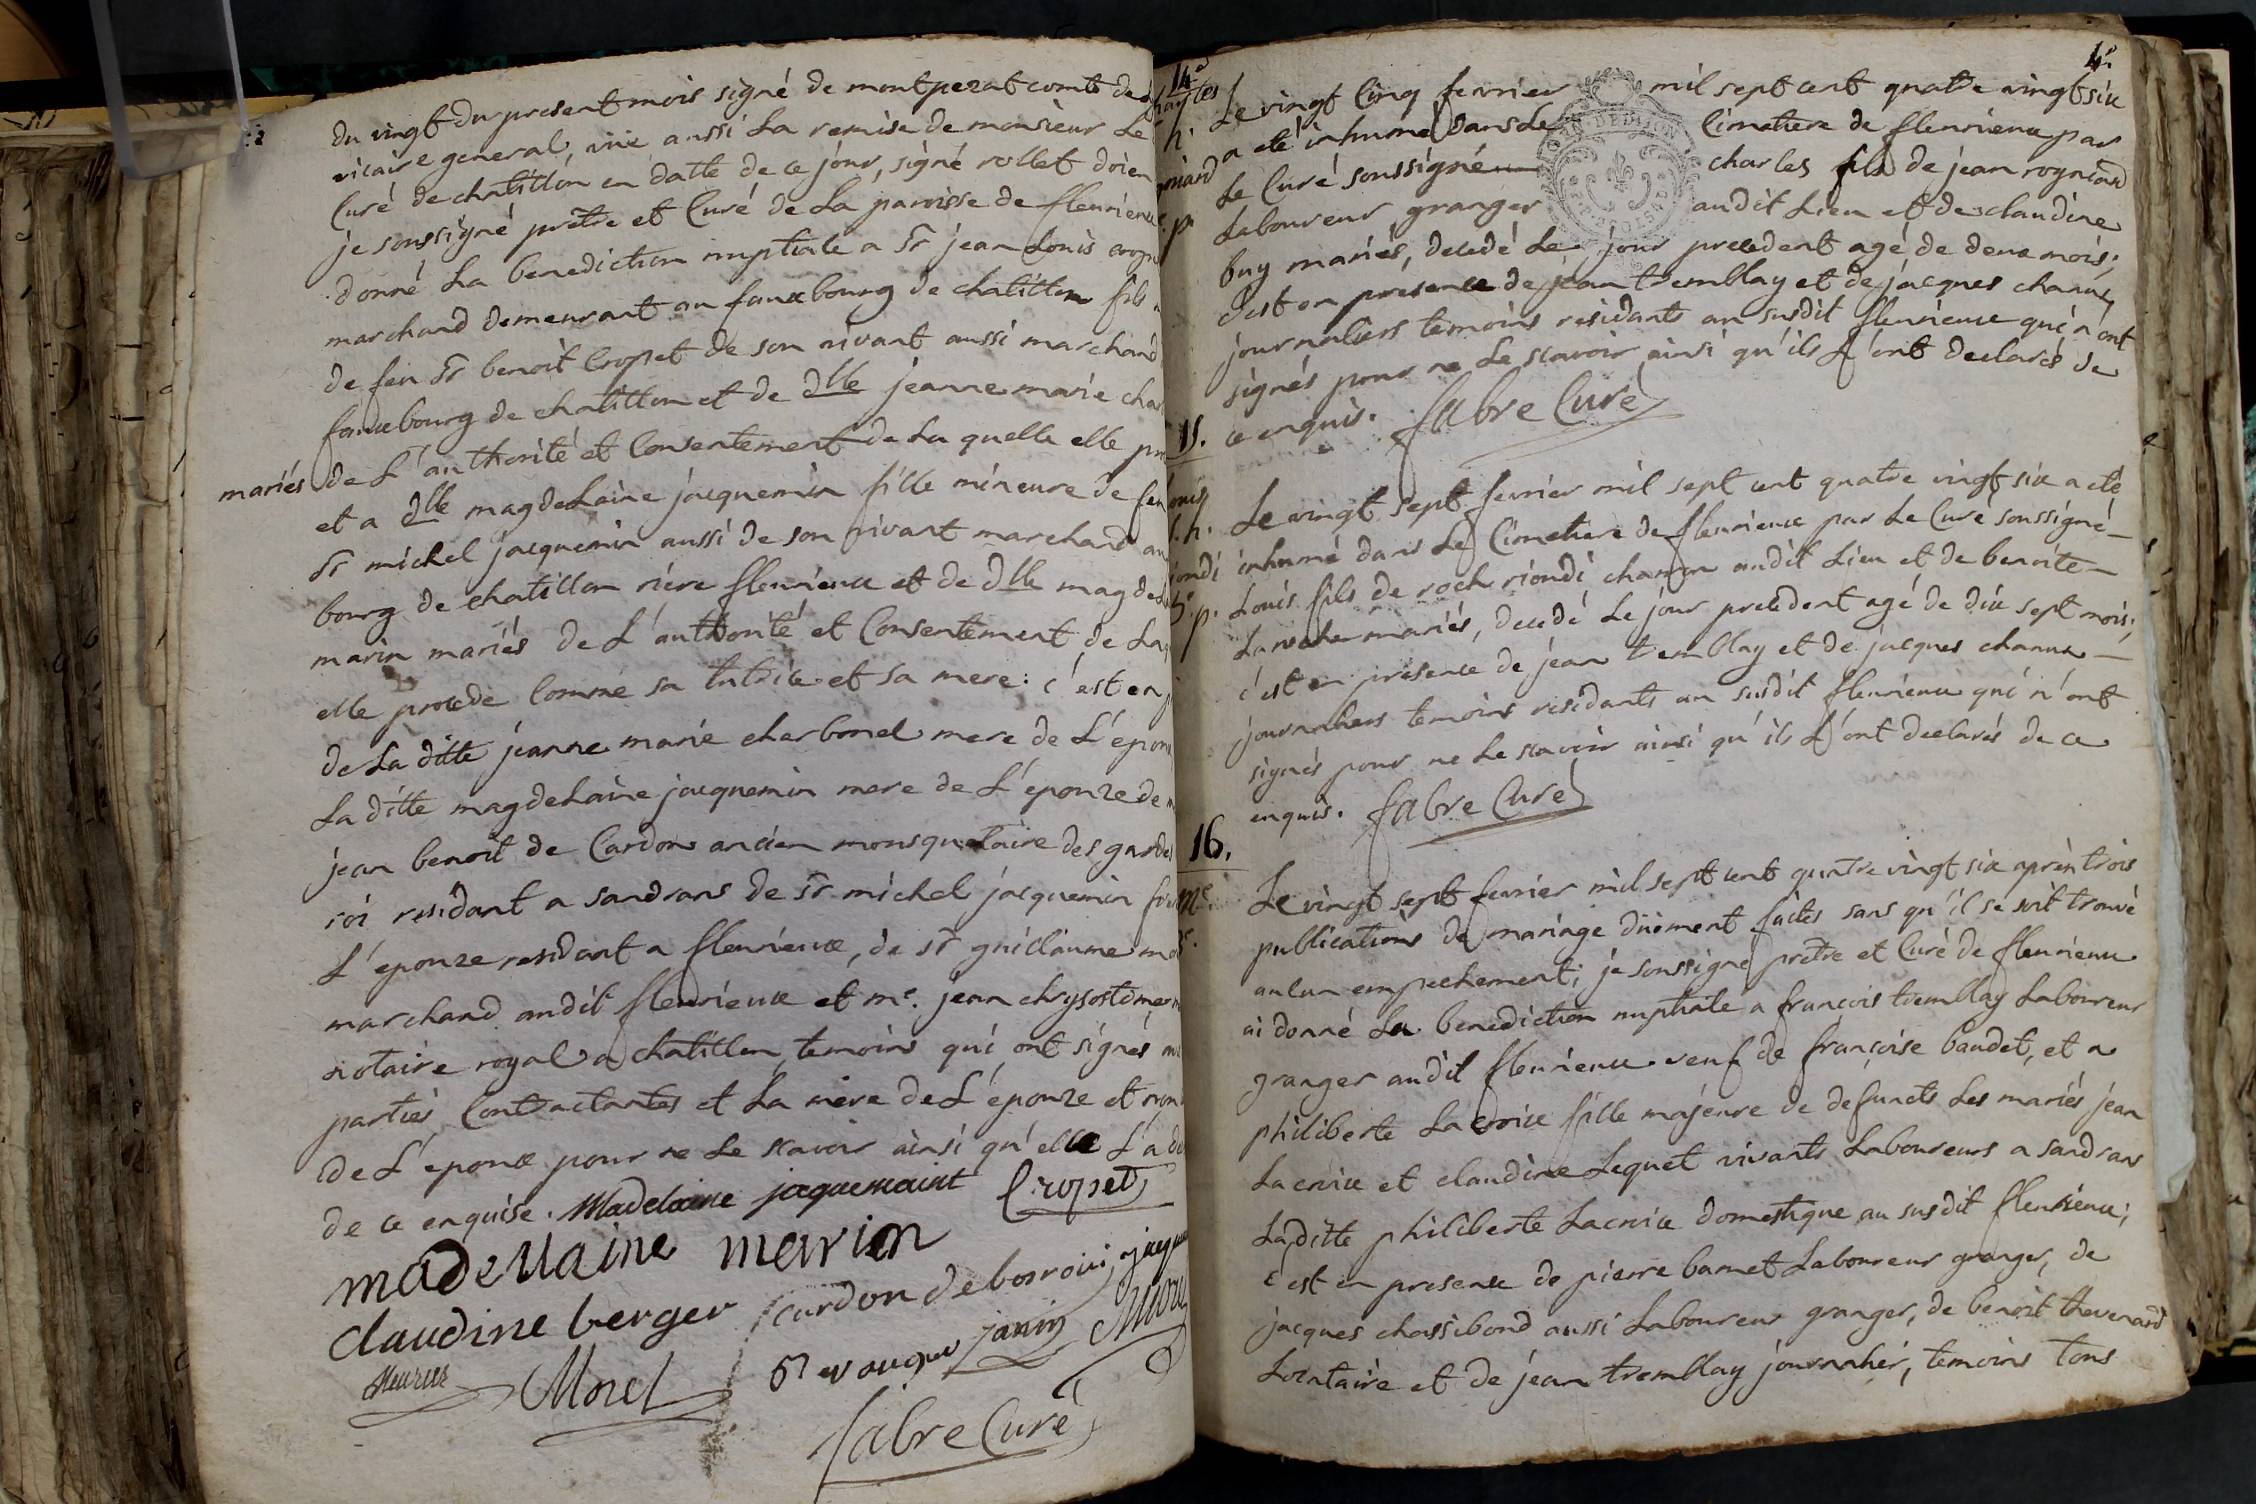 du vingt du present mois signé de montperat comte de
vicaire general, vüe aussi La remise de monsieur Le
Curé de chatillon en datte de ce jour, signé rollet doien
je soussigné prêtre et Curé de La paroisse de fleurieux
donné La benediction nuptiale a Sr jean Louis crop
marchand demeurant au fauxbourg de chatillon fils
de feu Sr benoit Cropet de son vivant aussi marchand
fauxbourg de chatillon et de dlle jeanne marie char
mariés de L'authorité et Consentement de La quelle elle pro
et a dlle magdelaine jacquemin fille mineure de feu
Sr michel jacquemin aussi de son vivant marchand au
bourg de chatillon rière fleurieux et de dlle magdel
marin mariés de L'authorité et Consentement de Laq
elle procede Comme sa tutrice et sa mere: c'est en p
de La ditte jeanne marie charbonel mere de L'epoux
La ditte magdelaine jacquemin mere de L'epouze de
jean benoit de Cardon ancien mousquetaire des gardes
roi residant a sandrans de Sr michel jacquemin fr
L'epouze residant a fleurieux, de Sr guillaume mo
marchand audit fleurieux et me. jean chrysostome
notaire royal a chatillon temoins qui ont signés
parties Contractantes et La mere de L'epouze et non
de L'epoux pour ne Le scavoir ainsi qu'elle L'a de
de ce enquise. Madelaine jaquemaint Cropet
madellaine marion
Claudine berger cardon de bosroin jacque
Morel janin
fabre Curé
14e 4e.
Le vingt Cinq fevrier mil sept cent quatre vingt six
a eté inhumé dans Le Cimetiere de fleurieux par
Le Curé soussigné charles fils de jean rogniard
Laboureur granger audit Lieu et de claudine
buy mariés, decedé Le jour precedent agé de deux mois;
c'est en presence de jean tremblay et de jacques chanux
journaliers temoins residants au susdit fleurieux qui n'ont
signés pour ne Le scavoir ainsi qu'ils L'ont declarés de
ce enquis. fabre Curé
15.
Le vingt sept fevrier mil sept cent quatre vingt six a eté
inhumé dans Le Cimetiere de fleurieux par Le Curé soussigné
Louis fils de roch riondi charron audit Lieu et de benoite
Laroche mariés, decedé Le jour precedent agé de dix sept mois;
c'est en presence de jean tremblay et de jacques chanux
journaliers temoins residants au susdit fleurieux qui n'ont
signés pour ne Le scavoir ainsi qu'ils L'ont declarés de ce
enquis. fabre Curé
16.
Le vingt sept fevrier mil sept cent quatre vingt six après trois
publications de mariage düement faites sans qu'il se soit trouvé
aucun empechement; je soussigné prêtre et Curé de fleurieux
ai donné La benediction nuptiale a françois tremblay Laboureur
granger audit fleurieux veuf de françoise baudet, et a
philiberte Lacroix fille majeure de defuncts Les mariés jean
Lacroix et claudine Lequet vivants Laboureurs a sandrans
Laditte philiberte Lacroix domestique au susdit fleurieux;
c'est en presence de pierre barnet Laboureur granger, de
jacques chassibond aussi Laboureur granger, de benoit thevenard
Locataire et de jean tremblay journalier, temoins tous